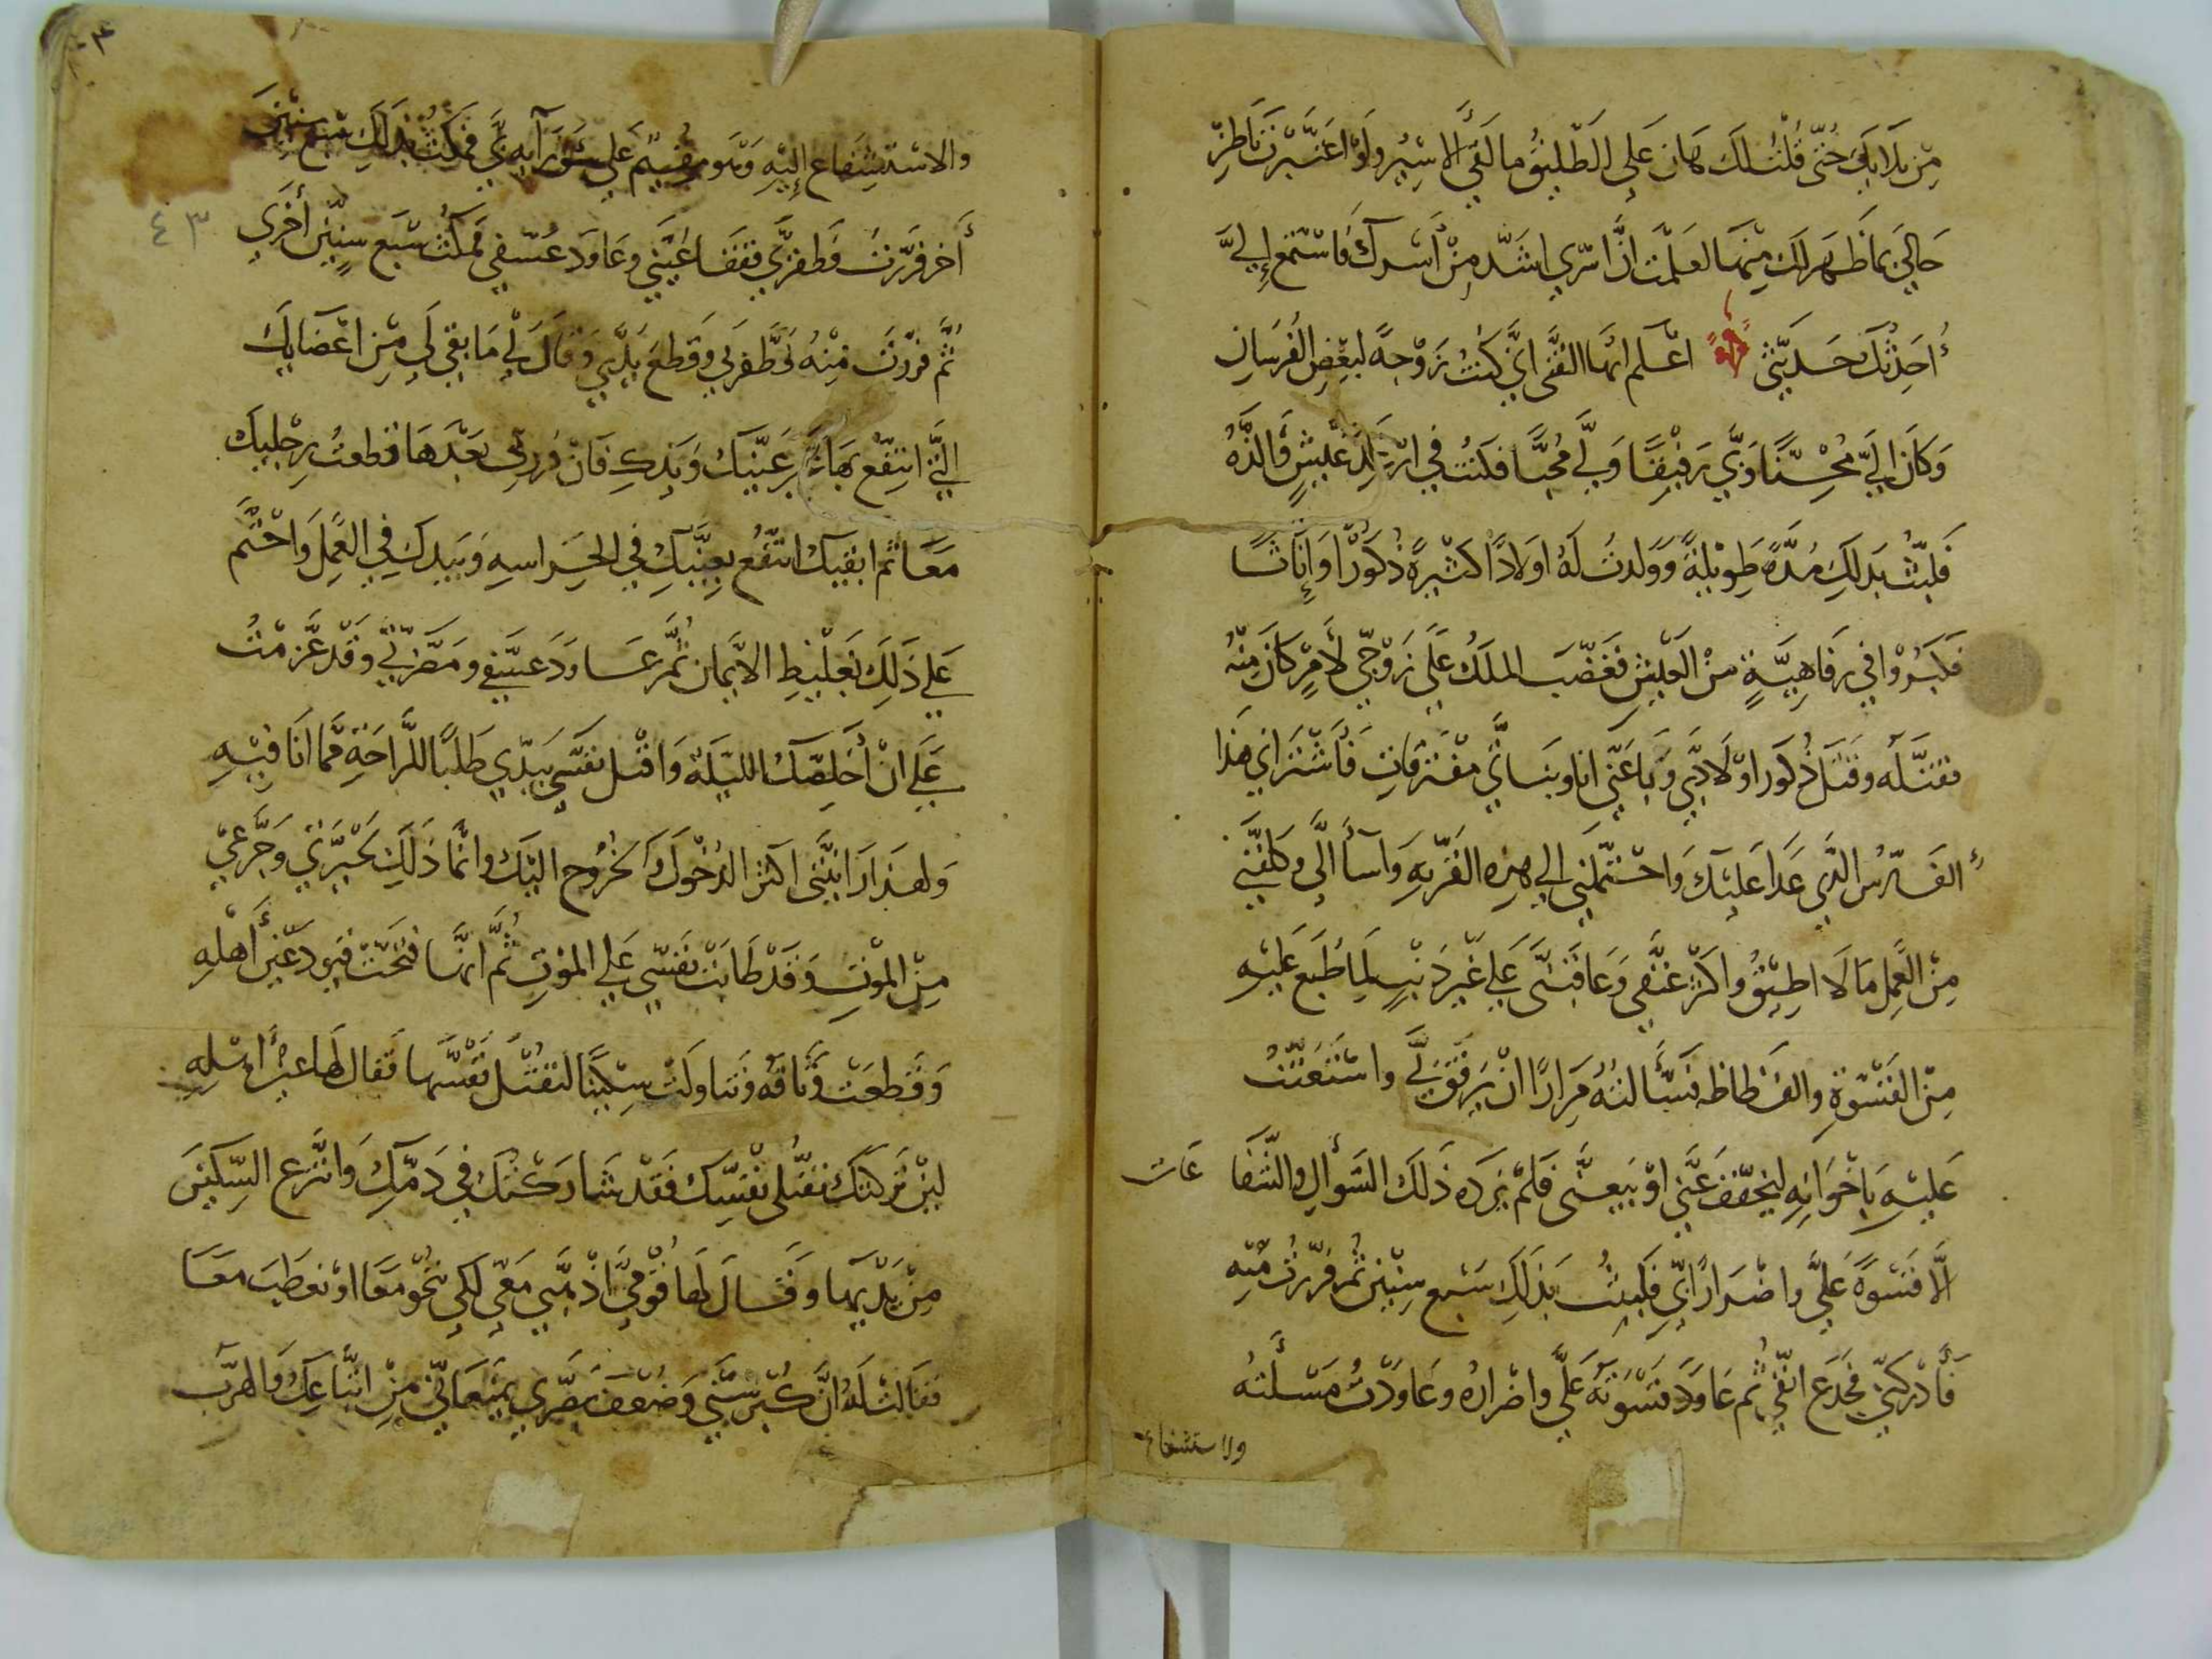 من بلايك حتى قلت لك هان على الطليق ما لقي الاسير ولو اعتبرت ناطر
حالي بما ظهر لك منها لعلمت ان اسري اشد من اسرك فاستمع إلي
أحدثك حديثي اعلم ايها الفتى اني كنت زوجة لبعض الفرسان
وكان الي محسنا وبي رفيقا ولي محبا فكنت في ارغد عيش والذه
فلبثت بذلك مدة طويلة وولدت له اولادا كثيرة ذكورا وإناثا
فكبروا في رفاهية من العيش فغضب الملك على زوجي لامر كان منه
فقتله وقتل ذكور اولادي وباعني انا وبناتي مفترقات فاشتراني هذا
الفارس الذي عدا عليك واحتملني الى هذه القرية واسأ الي وكلفني
من العمل ما لا اطيق واكثر عنفي وعاقبني على غير ذنب لما طبع عليه
من القسوة والفظاظه فسألته مرارا ان يرفق لي واستعنت
عليه باخوانه ليخفف عني او يبيعني فلم يزده ذلك السؤال والشفا عات
الا قسوة علي واضرارا بي فلبثت بذلك سبع سنين ثم فررت منه
فأدركني فجدع انفي ثم عاود قسوته علي واضراره وعاودت مسلته
والاستشفاع
٤٣
والاستشفاع إليه وهو مقيم على سور آيه بي فمكثت بذلك سبع سنين
أخر فررت فظفر بي ففقا عيني وعاود عسفي فمكثت سبع سنين أخرى
ثم فررت منه فظفر بي وقطع يدي وقال لي ما بقي لي من اعضايك
التي انتفع بها غير عينيك ويدك فان فررتي بعدها قطعت رجليك
معا ثم ابقيك انتفع بعينيك في الحراسه وبيدك في العمل واختم
على ذلك بغليظ الايمان ثم عاود عسفي ومضرتي وقد عزمت
على ان أخلصك الليلة واقتل نفسي بيدي طلبا للراحة مما انا فيه
ولهذا رايتني اكثر الدخول والخروج اليك وانما ذلك لحيرتي وجزعي
من الموت وقد طابت نفسي على الموت ثم انها فتحت قيود عين أهله
وقطعت وثاقه وتناولت سكينا لتقتل نفسها فقال لها عين أهله
لين تركتك تقتلي نفسك فقد شاركتك في دمك وانتزع السكين
من يديها وقال لها قومي اذهبي معي لكي ننجو معا او نعطب معا
فقالت له ان كبر سني وضعف بصري يمنعاني من اتباعك والهرب